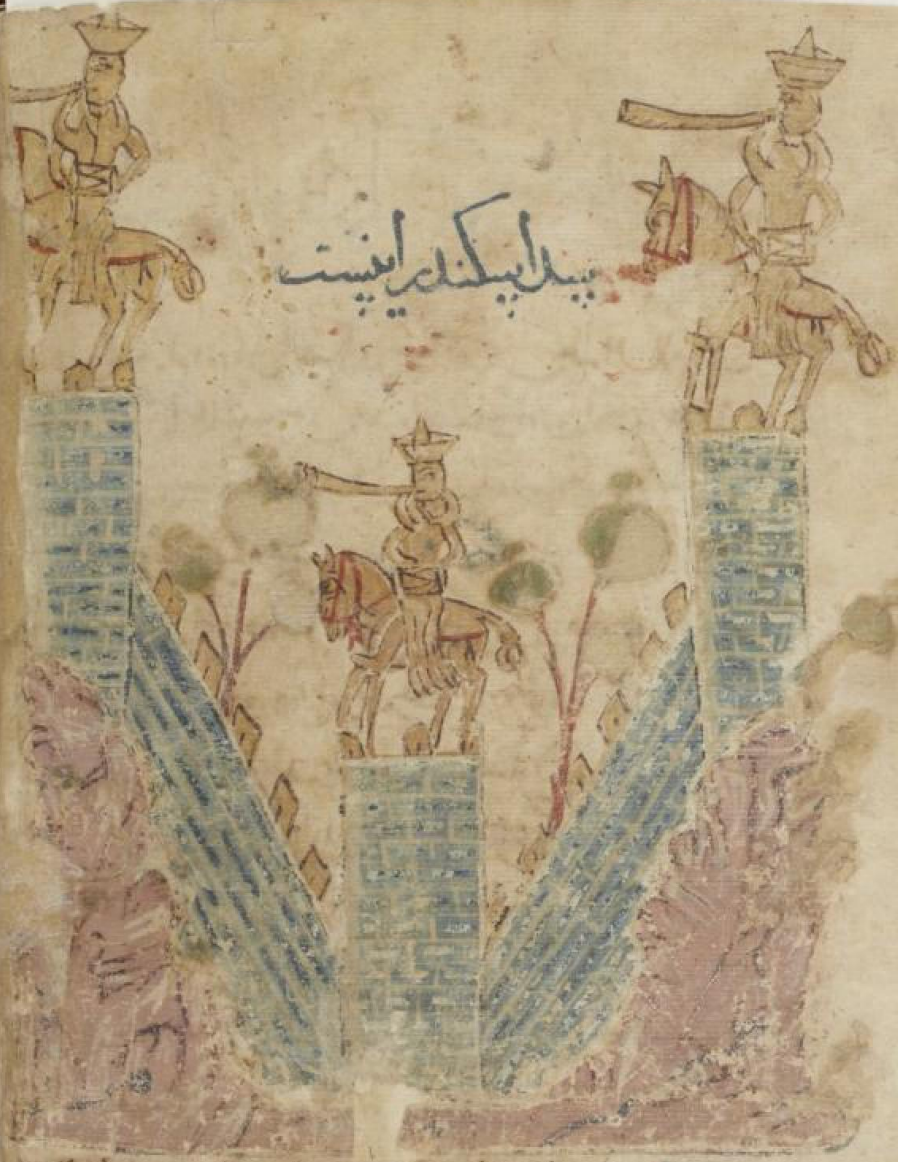 سد اسکندر اینست